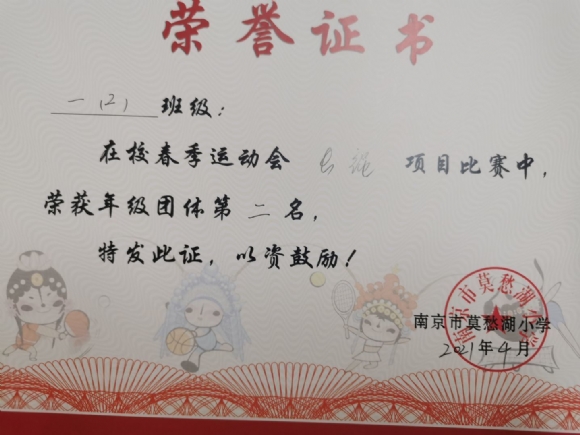 荣誉证书
一(2) 班级:
在校春季运动会 长绳 项目比赛中,
荣获年级团体第 二 名,
特发此证, 以资鼓励!
南京市莫愁湖小学
南京市莫愁湖小学
2021年4月